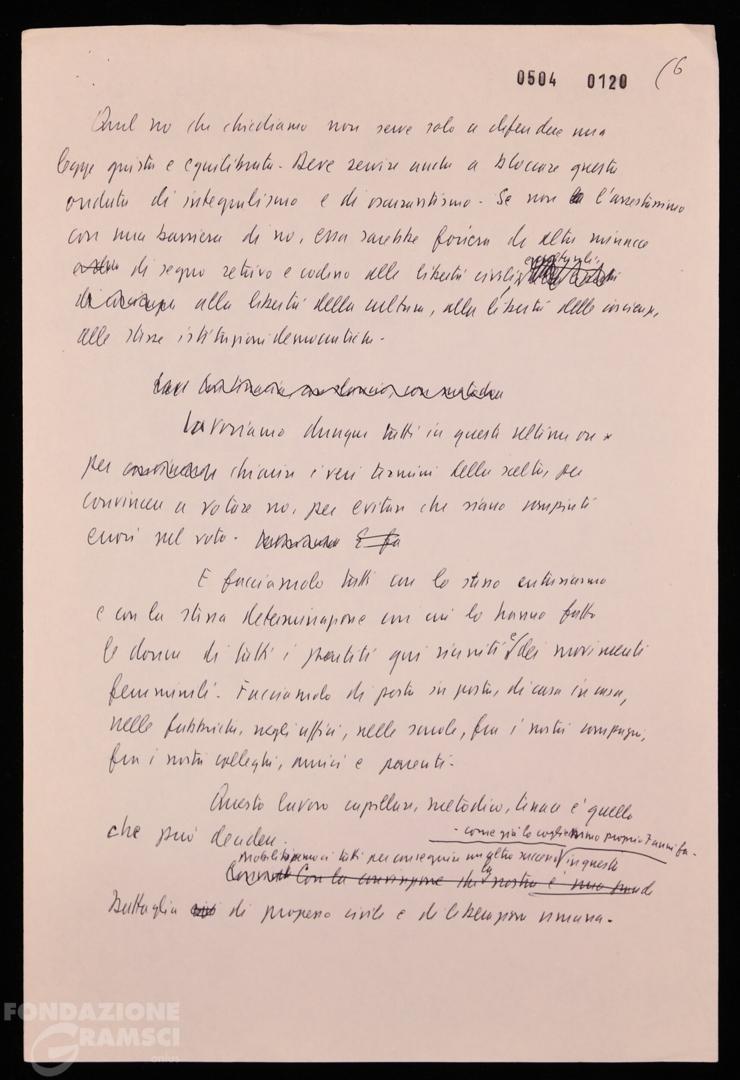 0504 0120 (6
Quel no che chiediamo non serve solo a difendere una
legge giusta e equilibrata. Deve servire anche a bloccare questa
ondata di integralismo e di oscurantismo. Se non la l'arrestassimo
con una barriera di no, essa sarebbe foriera di altre minacce
di segno retrivo e codino alle libertà civili,
alla libertà della cultura, alla libertà delle coscienze,
alle stesse istituzioni democratiche.
Lavoriamo dunque tutti in queste ultime ore
per convincere chiarire i veri termini della scelta, per
convincere a votare no, per evitare che siano compiuti
errori nel voto. E fa
E facciamolo tutti con lo stesso entusiasmo
e con la stessa determinazione con cui lo hanno fatto
le donne di tutti i partiti qui riuniti e dei movimenti
femminili. Facciamolo di porta in porta, di casa in casa,
nelle fabbriche, negli uffici, nelle scuole, fra i nostri compagni,
fra i nostri colleghi, amici e parenti.
Questo lavoro capillare, metodico, tenace è quello
che può decidere.
- come già lo cogliemmo proprio 7 anni fa -
mobilitiamoci tutti per conseguire un altro successo in questa
Con la convinzione che la nostra è una grande
battaglia di progresso civile e di liberazione umana.
FONDAZIONE
GRAMSCI
onlus